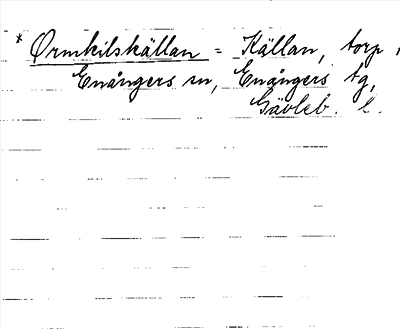 * Ørmkilskällan = Källan, torp,
Enångers sn, Enångers tg,
Gävleb. l.